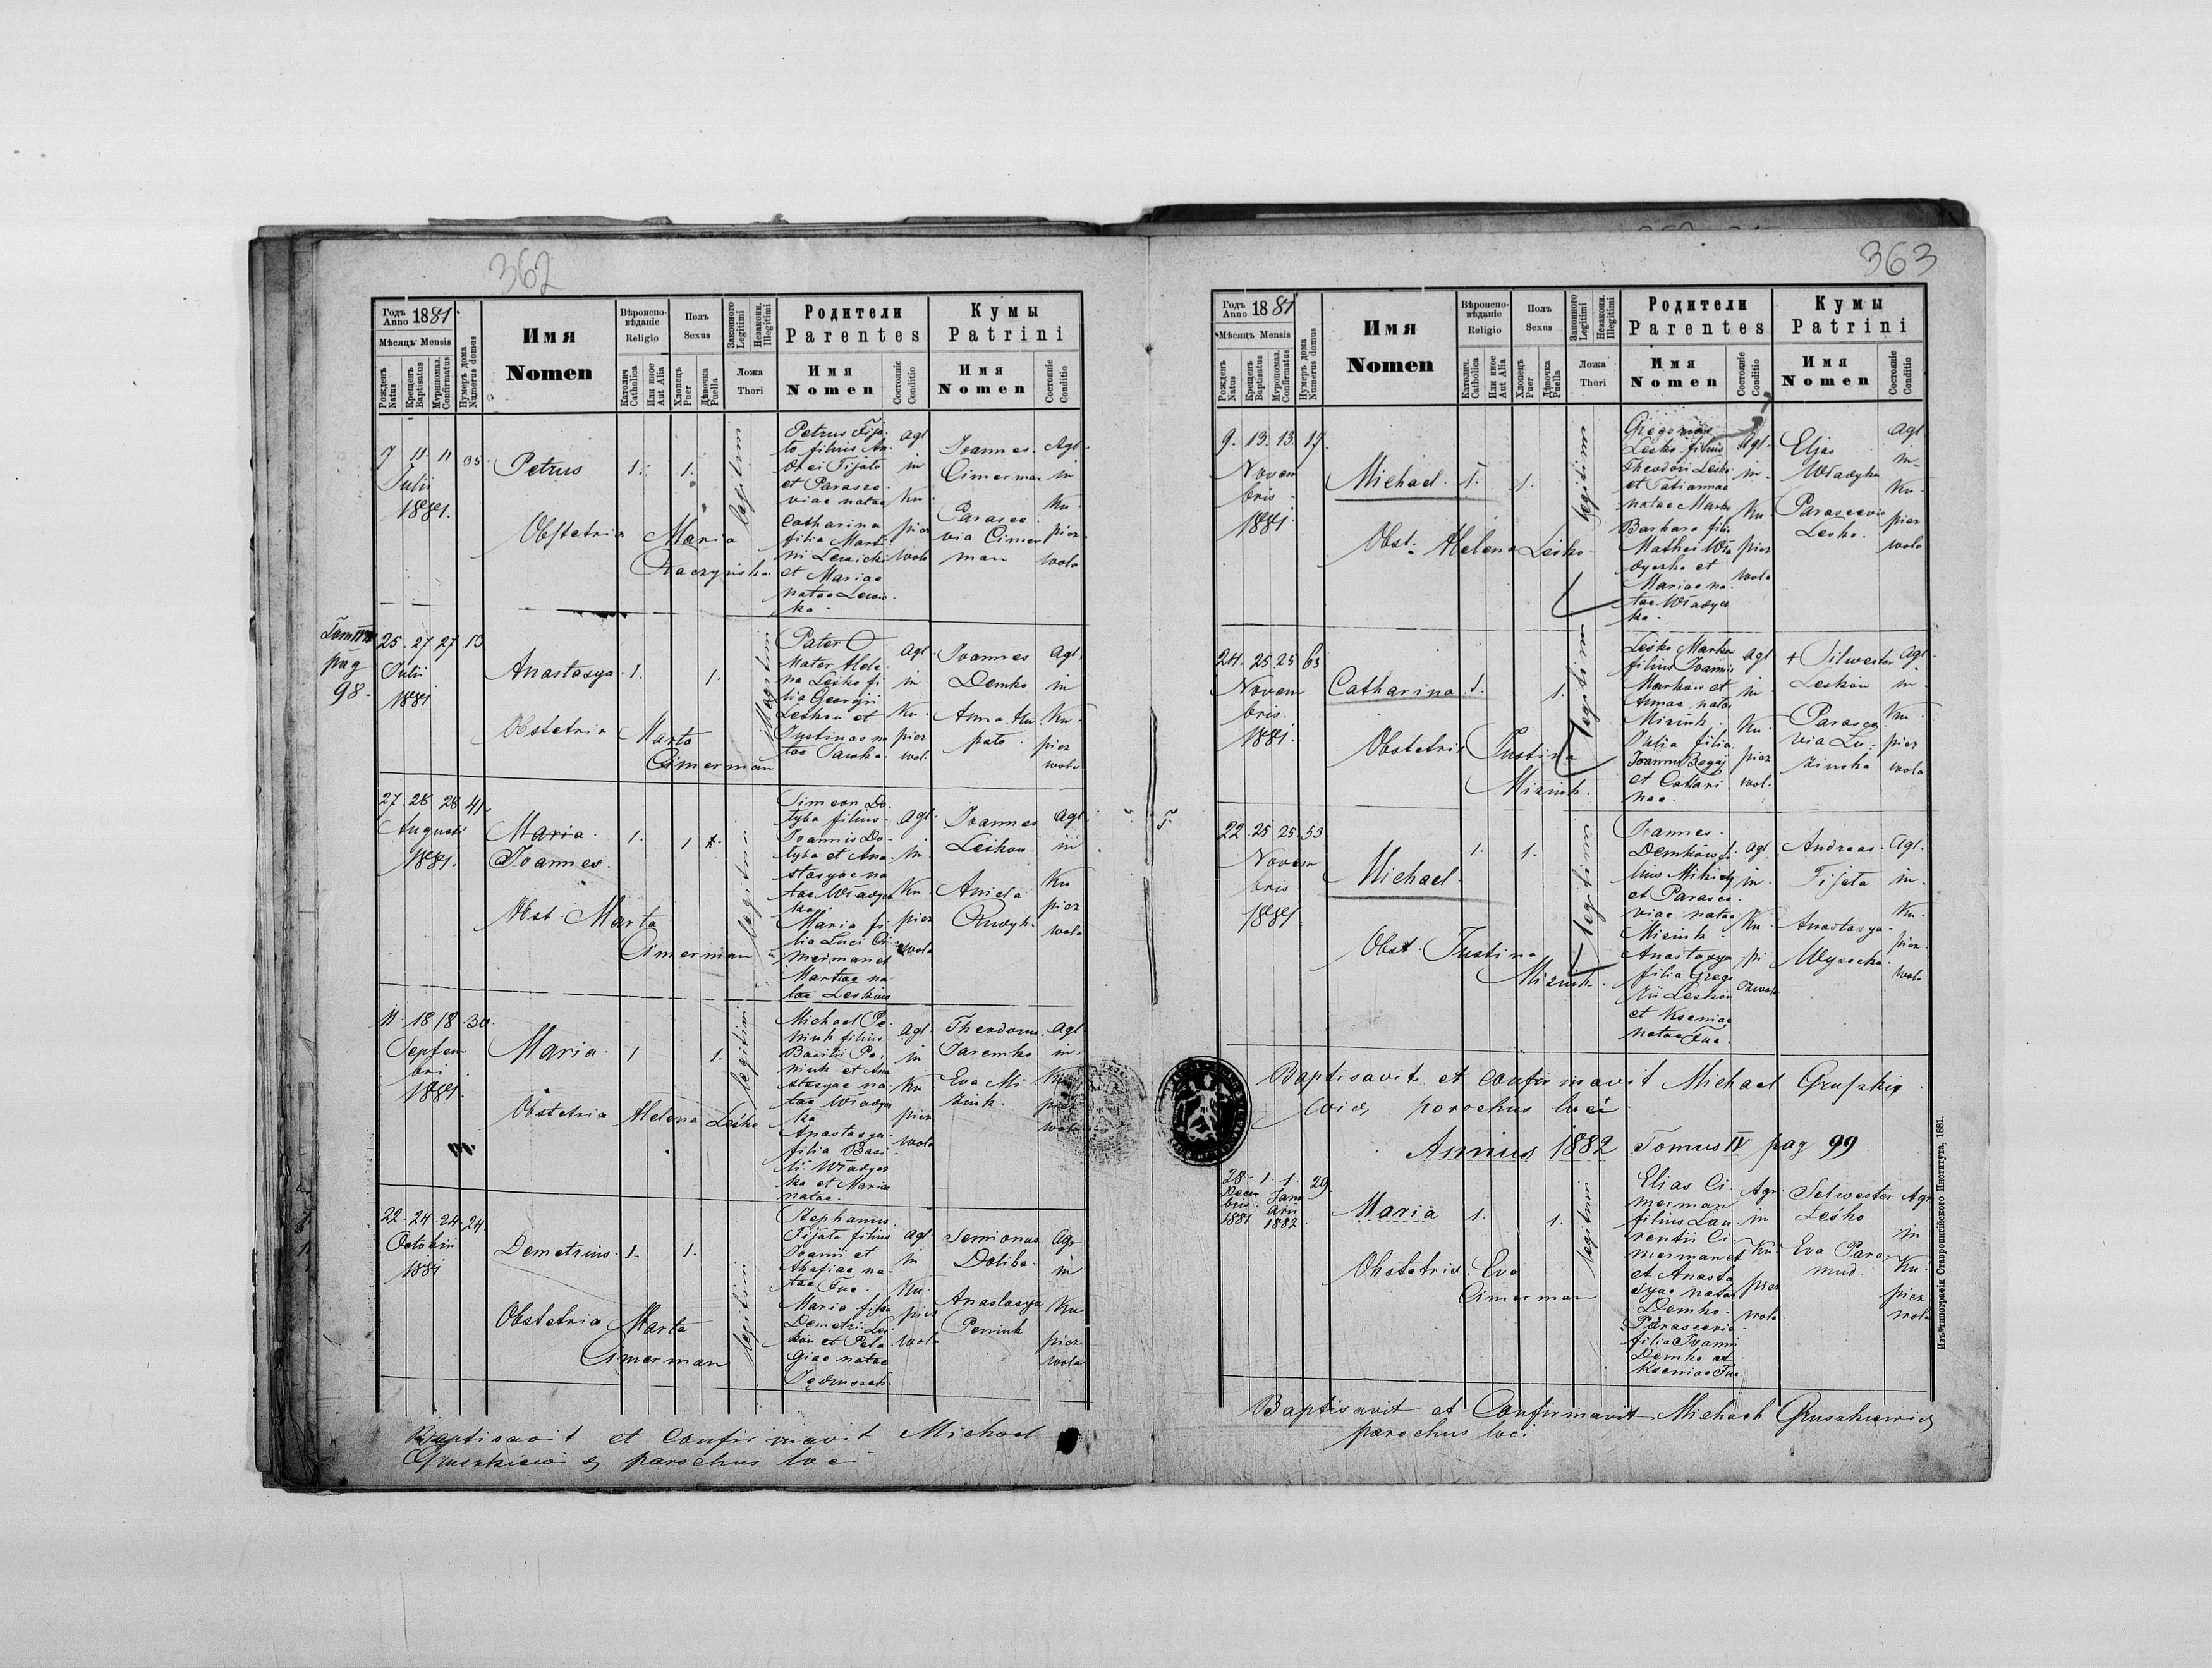 362
Годъ Anno 1881
Мѣсяцъ Mensis
Рожденъ Natus
Крещенъ Baptisatus
Мѵропомаз. Confirmatus
Нумеръ дома Numerus domus
Имя
Nomen
Вѣроиспо-
вѣданіе
Religio
Католич Catholica
Или иное Aut Alia
Полъ
Sexus
Хлопець Puer
Дѣвочка Puella
Законного Legitimi
Незаконн. Illegitimi
Ложа
Thori
Родители
Parentes
Имя
Nomen
Состояніе Conditio
Кумы
Patrini
Имя
Nomen
Состояніе Conditio
7 11 11
Julii
1881.
Petrus 1. 1.
Obstetrix Maria
legitimi
Petrus Fija-
to filius An-
drei Fijato
et Parasce-
viae natae
Catharina
filia Marti-
ni Lewicki
et Mariae
natae Lewic-
ka
agl in Ku pier wola
Joannes
Cimerman
Parasce-
via Cimer
man
Agl in Ku pier wola
pag
98
25. 27 27. 13
Julii
1881
Anastasya 1. 1.
Obstetrix Marta
Cimerman
Pater O
Mater Hele-
na Leśko fi-
lia Georgii
Leśkou et
Justinae na
tae
agl in Ku pier wol.
Joannes
Demko
Anna
agl in Ku pier wola
27. 28 28 41
Augusti
1881.
Maria
Joannes.
1. 1
Obst. Marta
Cimerman
legitimi
Simeon Do-
tyba filius
Joannis Do-
tyba et Ana-
stasyae na
tae Władyc
ka
Maria fi
lia Luci Ci
merman et
Martiae na
tae Leskow
agl. in Ku pier wola
Joannes
Leśkou
Aniela
agl in Ku pier wola
11. 18 18. 30.
Septem
bri
1881.
Maria 1 1.
Obstetrix Helena Leśko
legitimi
Michael Pe-
niuk filius
Basilii Pe-
niuk et Ana
stasyae na
tae Władyc
ka
Anastasya
filia Basi-
lii Władyc
ka et Mariae
natae
agl. in Ku pier wola
Theodorus
Jaremko
Eva Mi
ziuk
agl in Ku pier wola
22. 24. 24. 24
Octobris
1881
Demetrius 1. 1.
Obstetrix Marta
Cimerman
legitimi
Stephanus
Fijata filius
Joannis et
Ahafiae na-
tae Fuc.
Maria filia
Demetrii Leś
kou et Pela
giae natae
agl in Ku pier wola
Semionus
Doliba
Anastasya
Peniuk
agr in Ku pier wola
Baptisavit et confirmavit Michael
Gruszkiewicz parochus loci
363
Годъ Anno 1881
Мѣсяцъ Mensis
Рожденъ Natus
Крещенъ Baptisatus
Мѵропомаз. Confirmatus
Нумеръ дома Numerus domus
Имя
Nomen
Вѣроиспо-
вѣданіе
Religio
Католич. Catholica
Или иное Aut Alia
Полъ
Sexus
Хлопець Puer
Дѣвочка Puella
Законного Legitimi
Незаконн. Illegitimi
Ложа
Thori
Родители
Parentes
Имя
Nomen
Состояніе Conditio
Кумы
Patrini
Имя
Nomen
Состояніе Conditio
9. 13. 13. 17
Novem
bris
1881.
Michael. 1. 1.
Obst. Helena Leśko
legitimi
Gregorius
Leśko filius
Theodori Leśko
et Tatiannae
natae Marko
Barbara filia
Mathei Wła
dyczka et
Mariae na-
tae Władyc
ka
agl in Ku pier wola
Eljas
Władyka
Parascevia
Leśko.
agl in Ku pier wola
24. 25 25 63
Novem
bris.
1881.
Catharina 1. 1.
Obstetrix Justina
Miziuk.
legitimi
Leśko Markow
filius Joannis
Markow et
Annae natae
Miziuk
Julia filia
Joannis
et Cathari
nae
agl in Ku pier wol.
+ Silwester
Leśkou
Parasce
via
agl in Ku pier wola
22. 25 25. 53
Novem
bris
1881.
Michael. 1. 1.
Obst. Justina
Miziuk.
legitimi
Joannes
Demkow fi
lius
et Parasce-
viae natae
Miziuk
Anastasya
filia Grego
rii Leskou
et Kseniae
natae Fuc.
agl in Ku pi erwola
Andreas
Fijata
Anastasya
Wysocka
agl. in Ku pier wola
Baptisavit et confirmavit Michael Gruszkie
wicz parochus loci
Annus 1882 Tomus IV pag 99
28. 1. 1. 29
Decem
bris
1881
Janu
arii
1882
Maria 1. 1.
Obstetrix Eva
Cimerman
legitimi
Elias Ci
merman
filius Lau
rentii Ci
merman et
et Anasta
syae natae
Demko
Parascevia
filia Joanni
Demko et
Kseniae Fuc
Agr in Ku pier wola
Selwester
Leśko
Eva Para
mud
Agr in Ku pier wola
Baptisavit et Confirmavit Michael Gruszkiewicz
parochus loci
Изъ типографіи Ставропигійского Института, 1881.